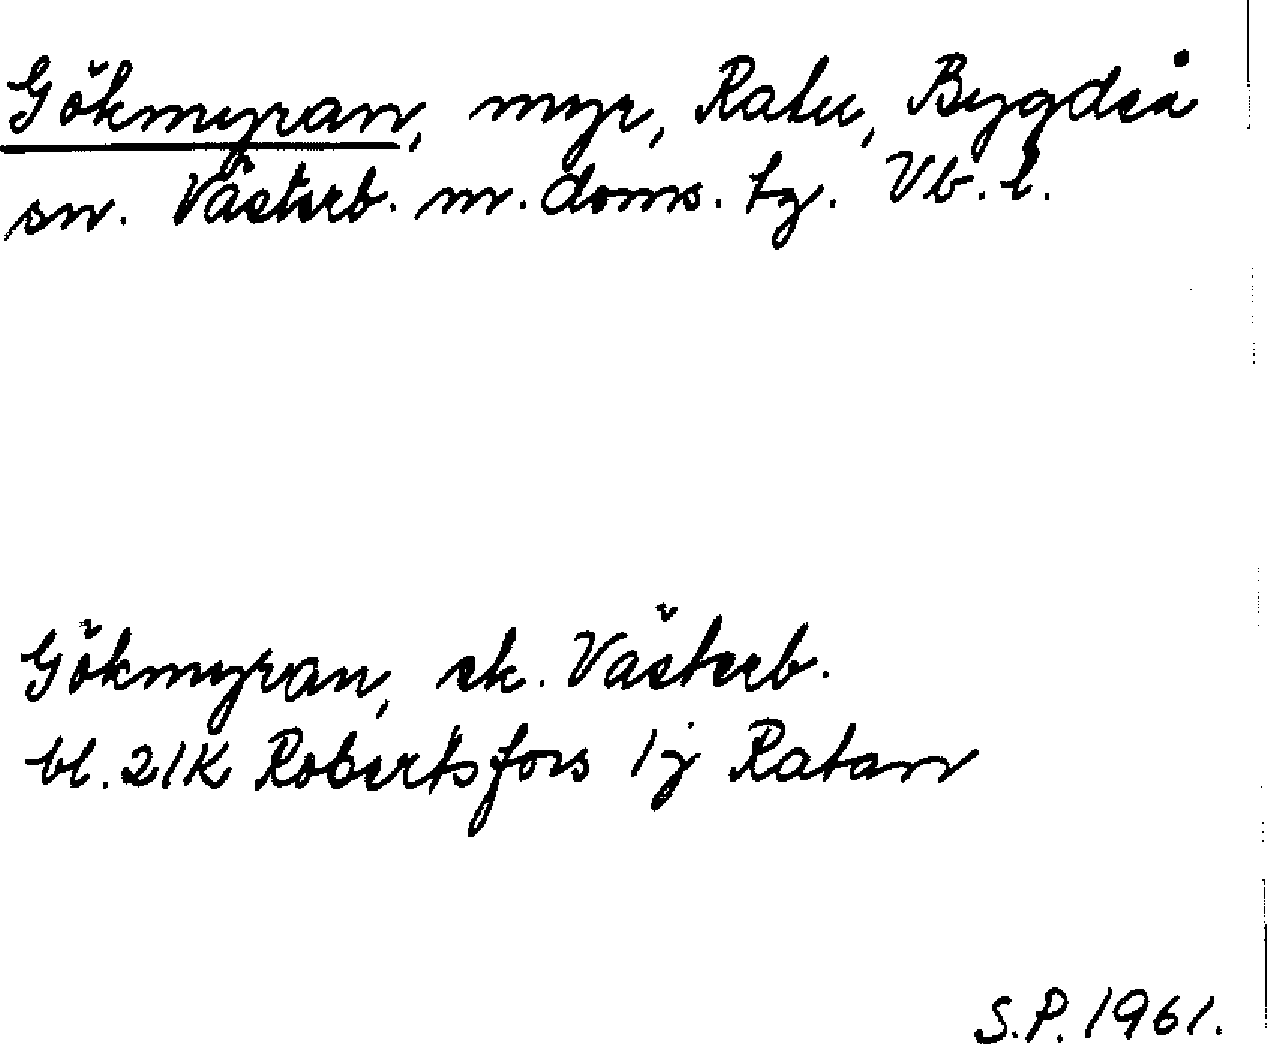 Gökmyran, myr, Ratu, Bygdeå
sn. Västerb. m. doms. tg. Vb. l.
Gökmyran, ek. Västerb.
bl. 21K Robertsfors 1j Ratan
S.P. 1961.